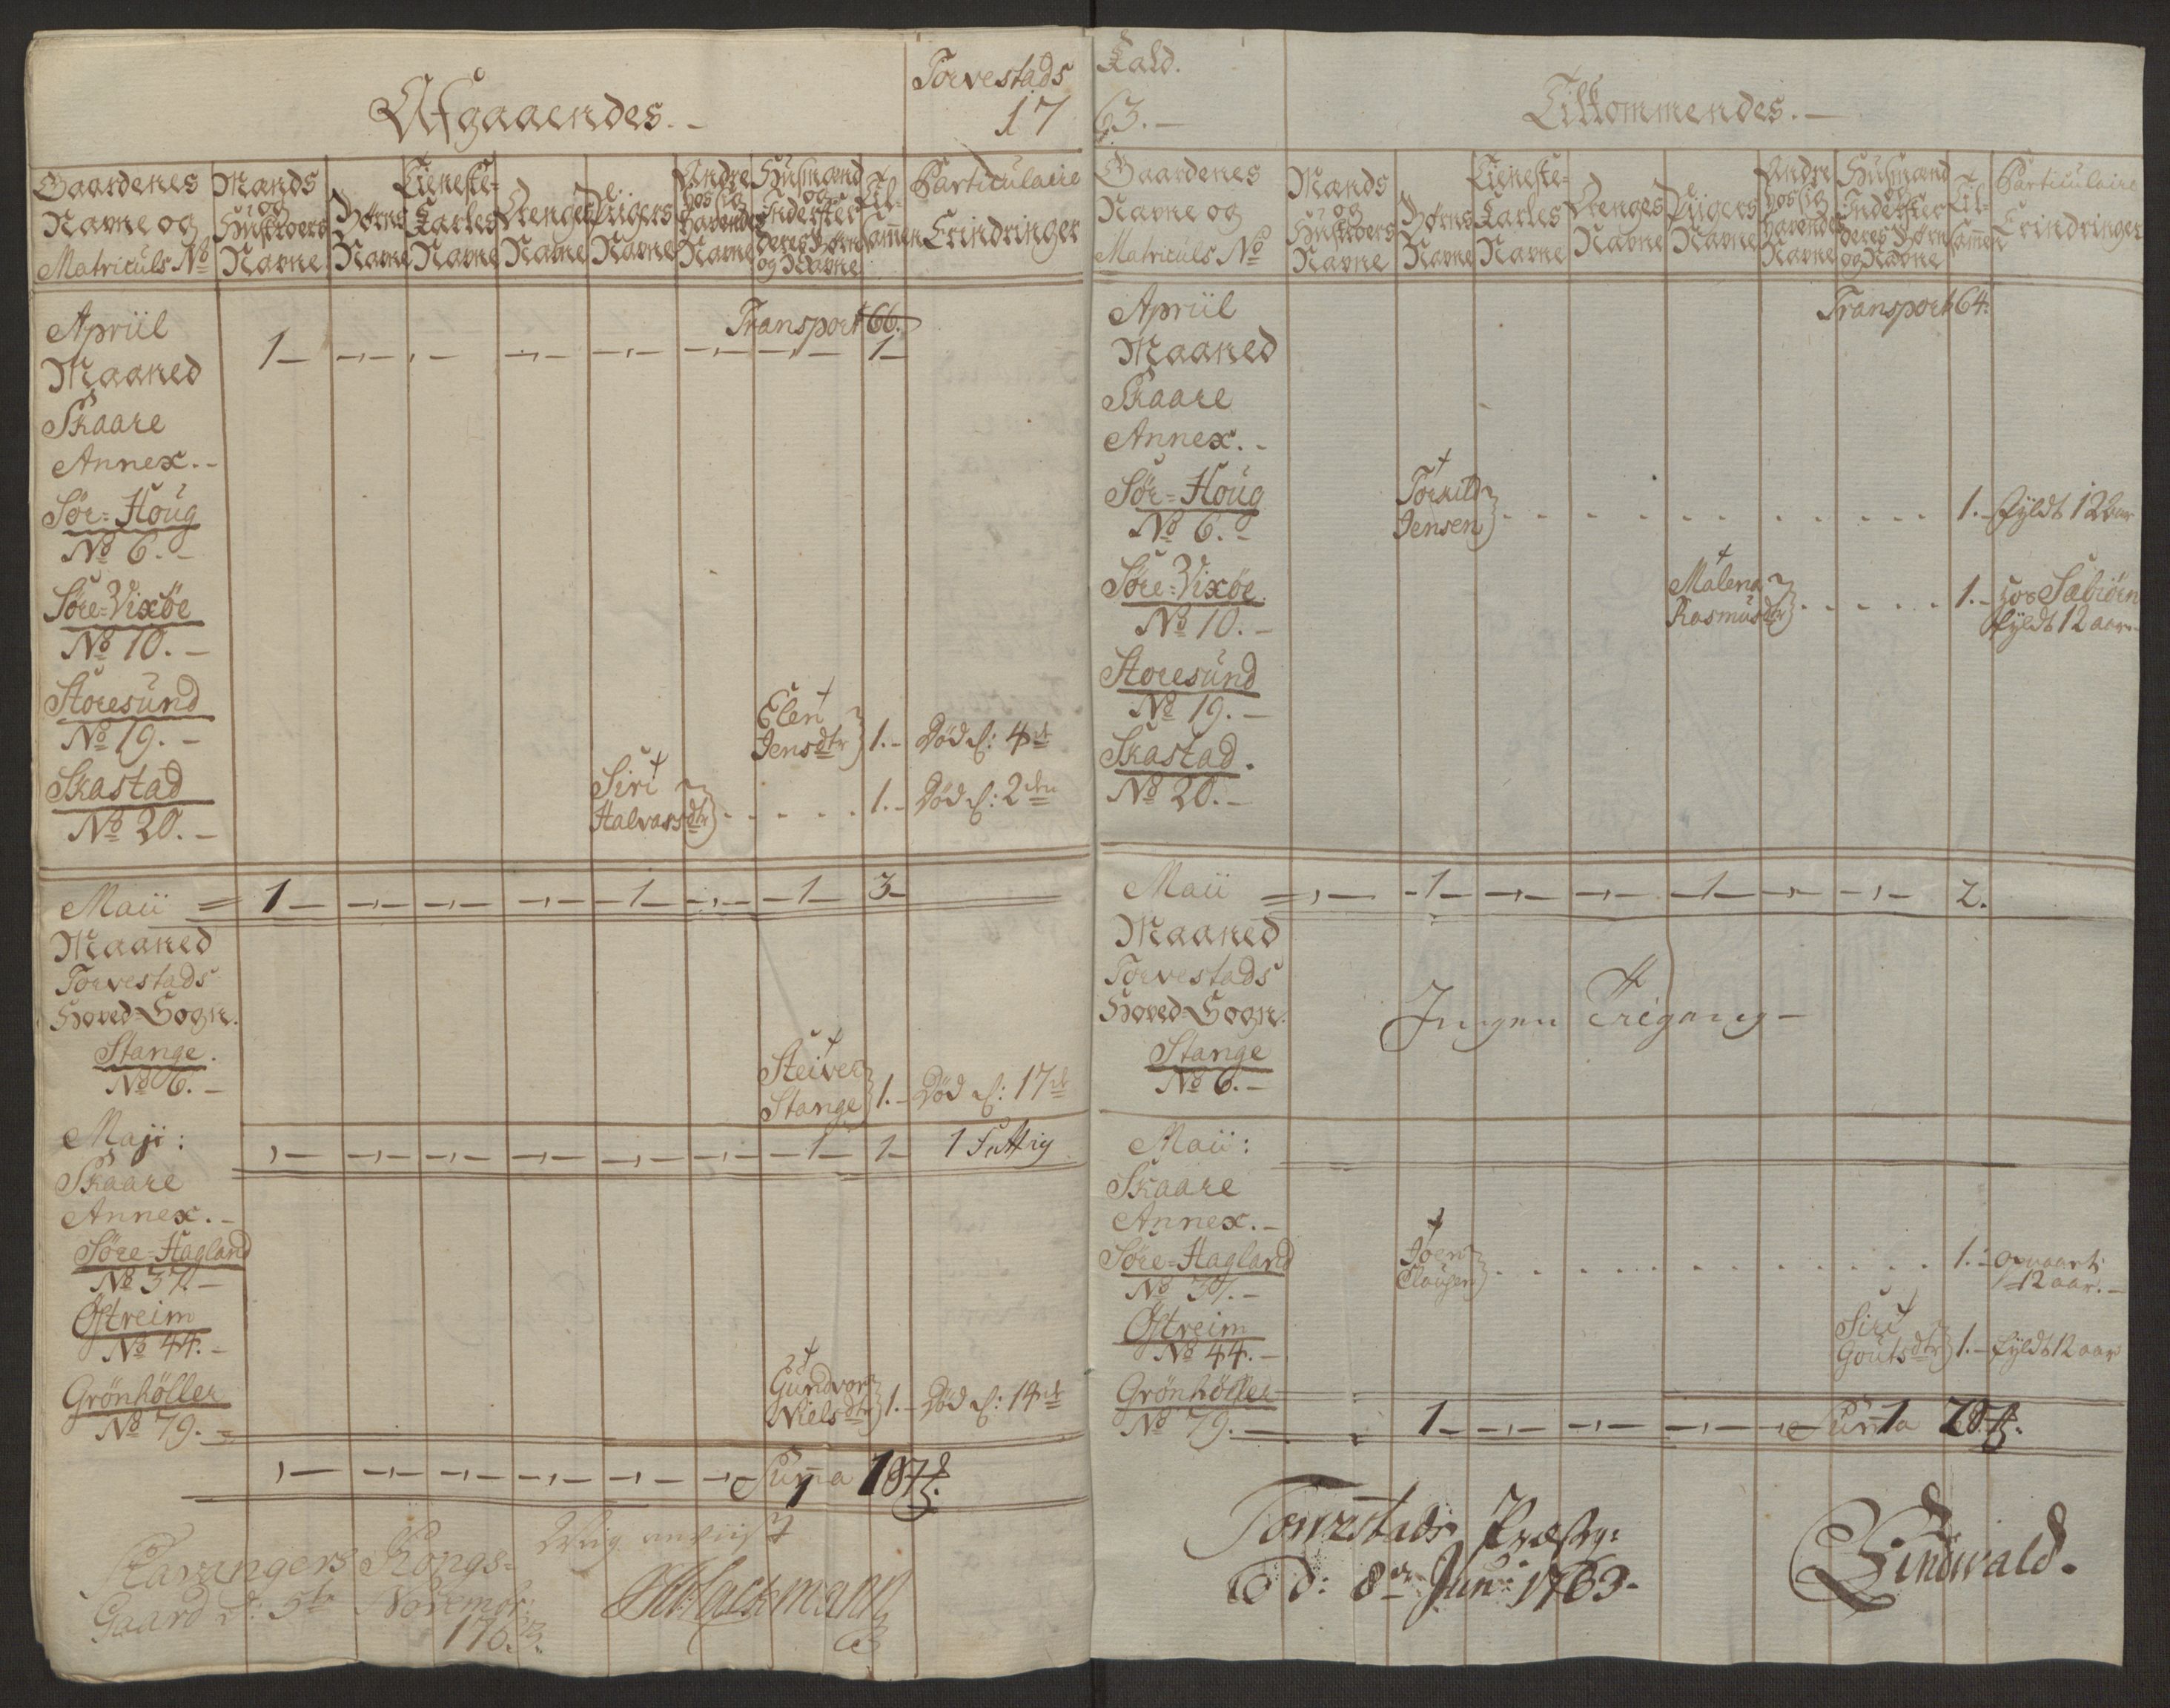 Afgaaendes.
Torvestads
17
Gaardenes
Navne og
Matriculs No
Mands
og
Hustroers
Navne
Børns
Navne
Tieneste-
Karles
Navne
Drenges
Navne
Piigers
Navne
Andre
hos sig
havende
Navne
Husmænd
og
Inderster
deres Børn
og Navne
Til-
sammen
Particulaire
Erindringer
Transport 66.
Apriil
Maaned
1 1
Skaare
Annex.
Sør-Houg
No 6.
Søre-Vixøe
No 10.
Storesund
No 19.
Elen
Jensdtr 1. Død d: 4de
Skastad
No 20.
Siri
Halvarsdtr 1. Død d: 2den
Maii 1 1 1 3
Maaned
Torvestads
Hoved-Sogn.
Stange.
No 6.
Steiner
Stange 1. Død d: 17de
Maji: 1 1 1 Fattig
Skaare
Annex.
Søre-Hagland
No 37.
Østreim
No 44.
Grönhöller
No 79.
Gundvor
Nielsdtr 1. Død d: 14de
Suma 1
Stavangers Kongs-
Gaard d: 5te Novembr:
1763.
Kald.
63.
Tilkommendes.
Gaardenes
Navne og
Matriculs No
Mands
og
Hustroers
Navne
Børns
Navne
Tieneste-
Karles
Navne
Drenges
Navne
Piigers
Navne
Andre
hos sig
havende
Navne
Husmænd
og
Inderster
deres Børn
og Navne
Til-
sammen
Particulaire
Erindringer
Transport 64.
Apriil
Maaned
Skaare
Annex.
Sør-Houg
No 6.
Torkild
Jensen 1. fyldt 12 aar
Søre-Vixøe.
No 10.
Malena
Rasmusdtr 1. hos Sæbiörn
fyldt 12 aar.
Storesund
No 19.
Skastad.
No 20.
Maii 1 1 2.
Maaned
Torvestads
Hoved-Sogn.
Ingen Tilgang
Stange
No 6.
Maii:
Skaare
Annex.
Søre-Hagland
No 37.
Joen
Clausen 1. opvoxt
12 aar.
Østreim
No 44.
Siri
Goutsdtr 1. fyldt 12 aar
Grönhöller
No 79.
1 Suma 1
Torvestads Præstg:
d: 8de Junii 1763.
Lindwald.